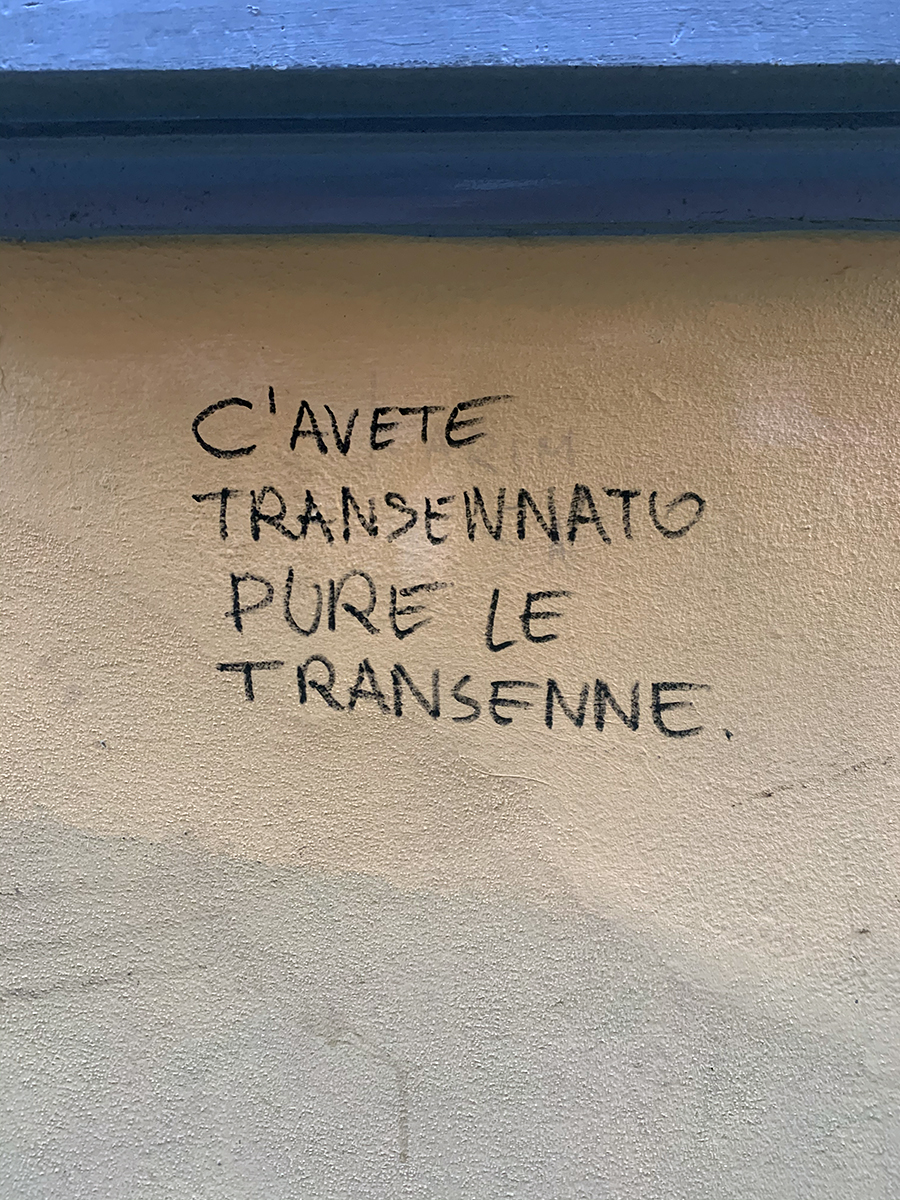 C'AVETE
TRANSENNATO
PURE LE
TRANSENNE.